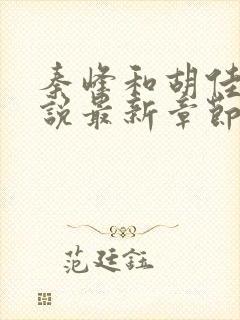 秦峰和胡佳
說最新章節
范廷鈺